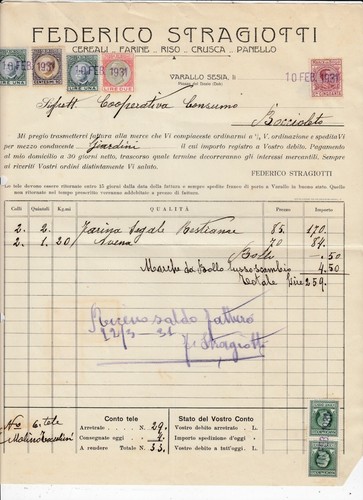 FEDERICO STRAGIOTTI
CEREALI - FARINE - RISO - CRUSCA - PANELLO
10 FEB. 1931 10 FEB. 1931
VARALLO SESIA, li 10 FEB. 1931
Spett Cooperativa Consumo
Boccioleto
Mi pregio trasmettervi fattura alla merce che Vi compiaceste ordinarmi a/ V. ordinazione e speditaVi
per mezzo conducente Giardini il cui importo registro a Vostro debito. Pagamento
al mio domicilio a 30 giorni netto, trascorso quale termine decorreranno gli interessi mercantili. Sempre
ai riveriti Vostri ordini distintamente Vi saluto.
FEDERICO STRAGIOTTI
Le tele devono essere ritornate entro 15 giorni dalla data della fattura e sempre spedite franco di porto a Varallo in buono stato. Quelle
non ritornate nel tempo prescritto verranno addebitate a prezzo di fattura.
Colli Quintali Kg.mi QUALITÀ Prezzo Importo
2. 2. Farina Segale Bestiame 85. 170.
2 1. 20 Avena 70 84.
Bolli -.50
Marche da Bollo lusso scambio 4.50
Totale Lire 259.
Ricevo saldo fattura
12/3-31
F. Stragiotti
Conto tele
Arretrate N. 29.
Consegnate oggi 4.
A rendere Totale N. 33.
Stato del Vostro Conto
Vostro debito arretrato L.
Importo spedizione d'oggi
Vostro debito a tutt'oggi L.
N.ro 6. tele